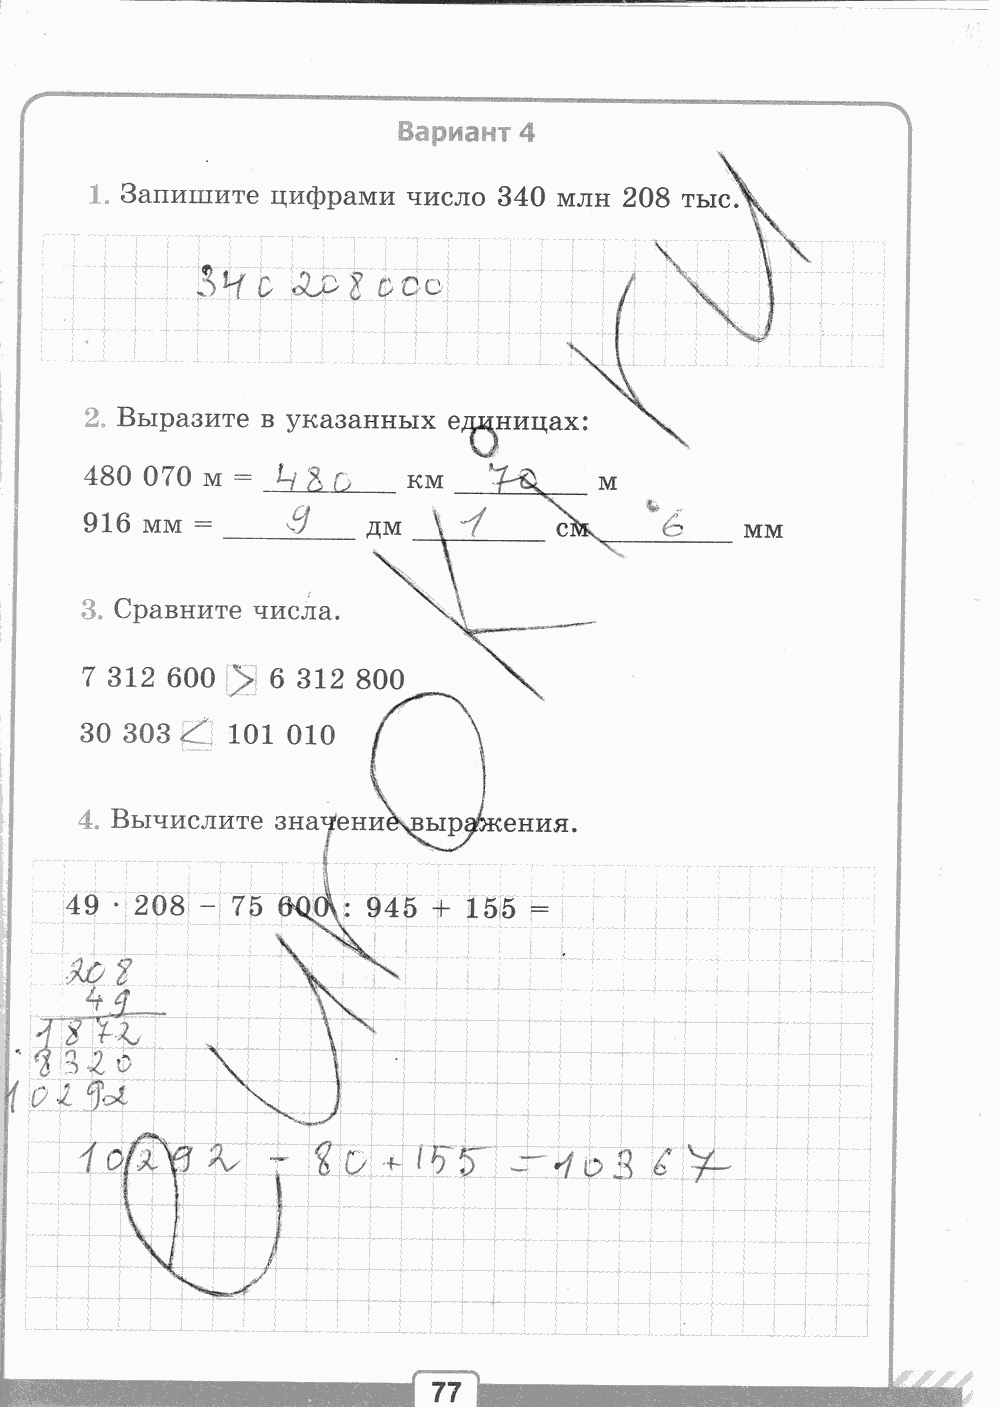 Вариант 4
1. Запишите цифрами число 340 млн 208 тыс.
340 208 000
2. Выразите в указанных единицах:
480 070 м = 480 км 70 м
916 мм = 9 дм 1 см 6 мм
3. Сравните числа.
7 312 600 > 6 312 800
30 303 < 101 010
4. Вычислите значение выражения.
49 · 208 – 75 600 : 945 + 155 =
208
49
1872
8320
10292
10292 - 80 + 155 = 10367
77